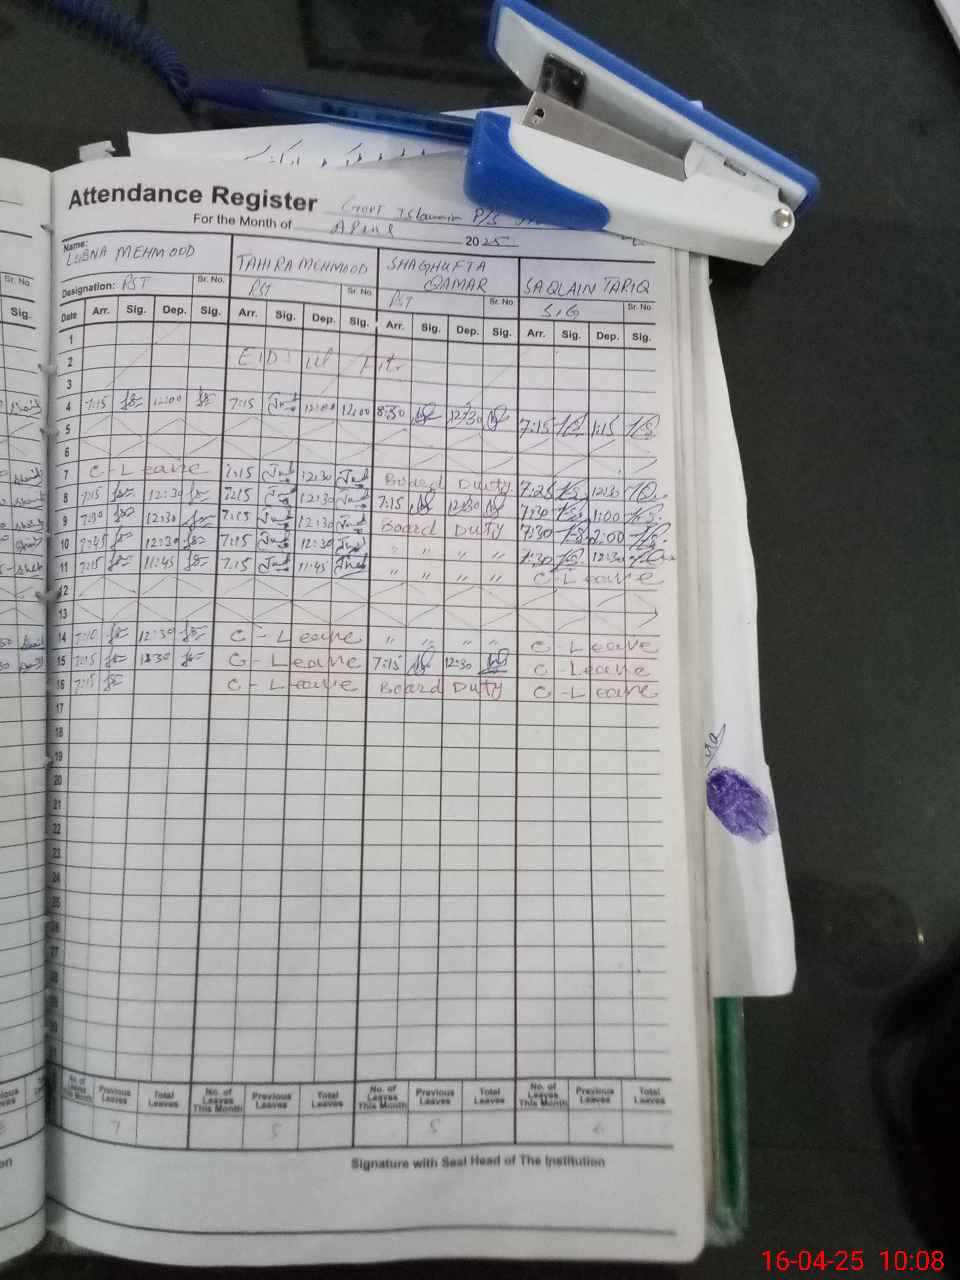 Attendance Register Govt Islamia P/S
For the Month of April 2025
Name: LUBNA MEHMOOD TAHIRA MEHMOOD SHAGHUFTA QAMAR SAQLAIN TARIQ
Designation: PST Sr. No. PST Sr. No. PST Sr. No. SIG Sr. No.
Date Arr. Sig. Dep. Sig. Arr. Sig. Dep. Sig. Arr. Sig. Dep. Sig. Arr. Sig. Dep. Sig.
1
2 EID ul Fitr
3
4 7:15 12:00 7:15 12:00 12:00 8:30 12:30 7:15 1:15
5
6
7 C-Leave 7:15 12:30 Board Duty 7:25 12:30
8 7:15 12:30 7:15 12:30 7:15 12:30 7:30 1:00
9 7:30 12:30 7:15 12:30 Board Duty 7:30 2:00
10 7:45 12:30 7:15 12:30 " " " " 7:30 12:30
11 7:15 11:45 7:15 11:45 " " " " C-Leave
12
13
14 7:15 12:30 C-Leave " " " " C-Leave
15 7:15 C-Leave 7:15 12:30 C-Leave
16 7:15 C-Leave Board Duty C-Leave
17
18
19
20
21
22
23
24
25
No. of Leaves This Month Previous Leaves Total Leaves No. of Leaves This Month Previous Leaves Total Leaves No. of Leaves This Month Previous Leaves Total Leaves No. of Leaves This Month Previous Leaves Total Leaves
7 5 5 6
Signature with Seal Head of The Institution
16-04-25 10:08